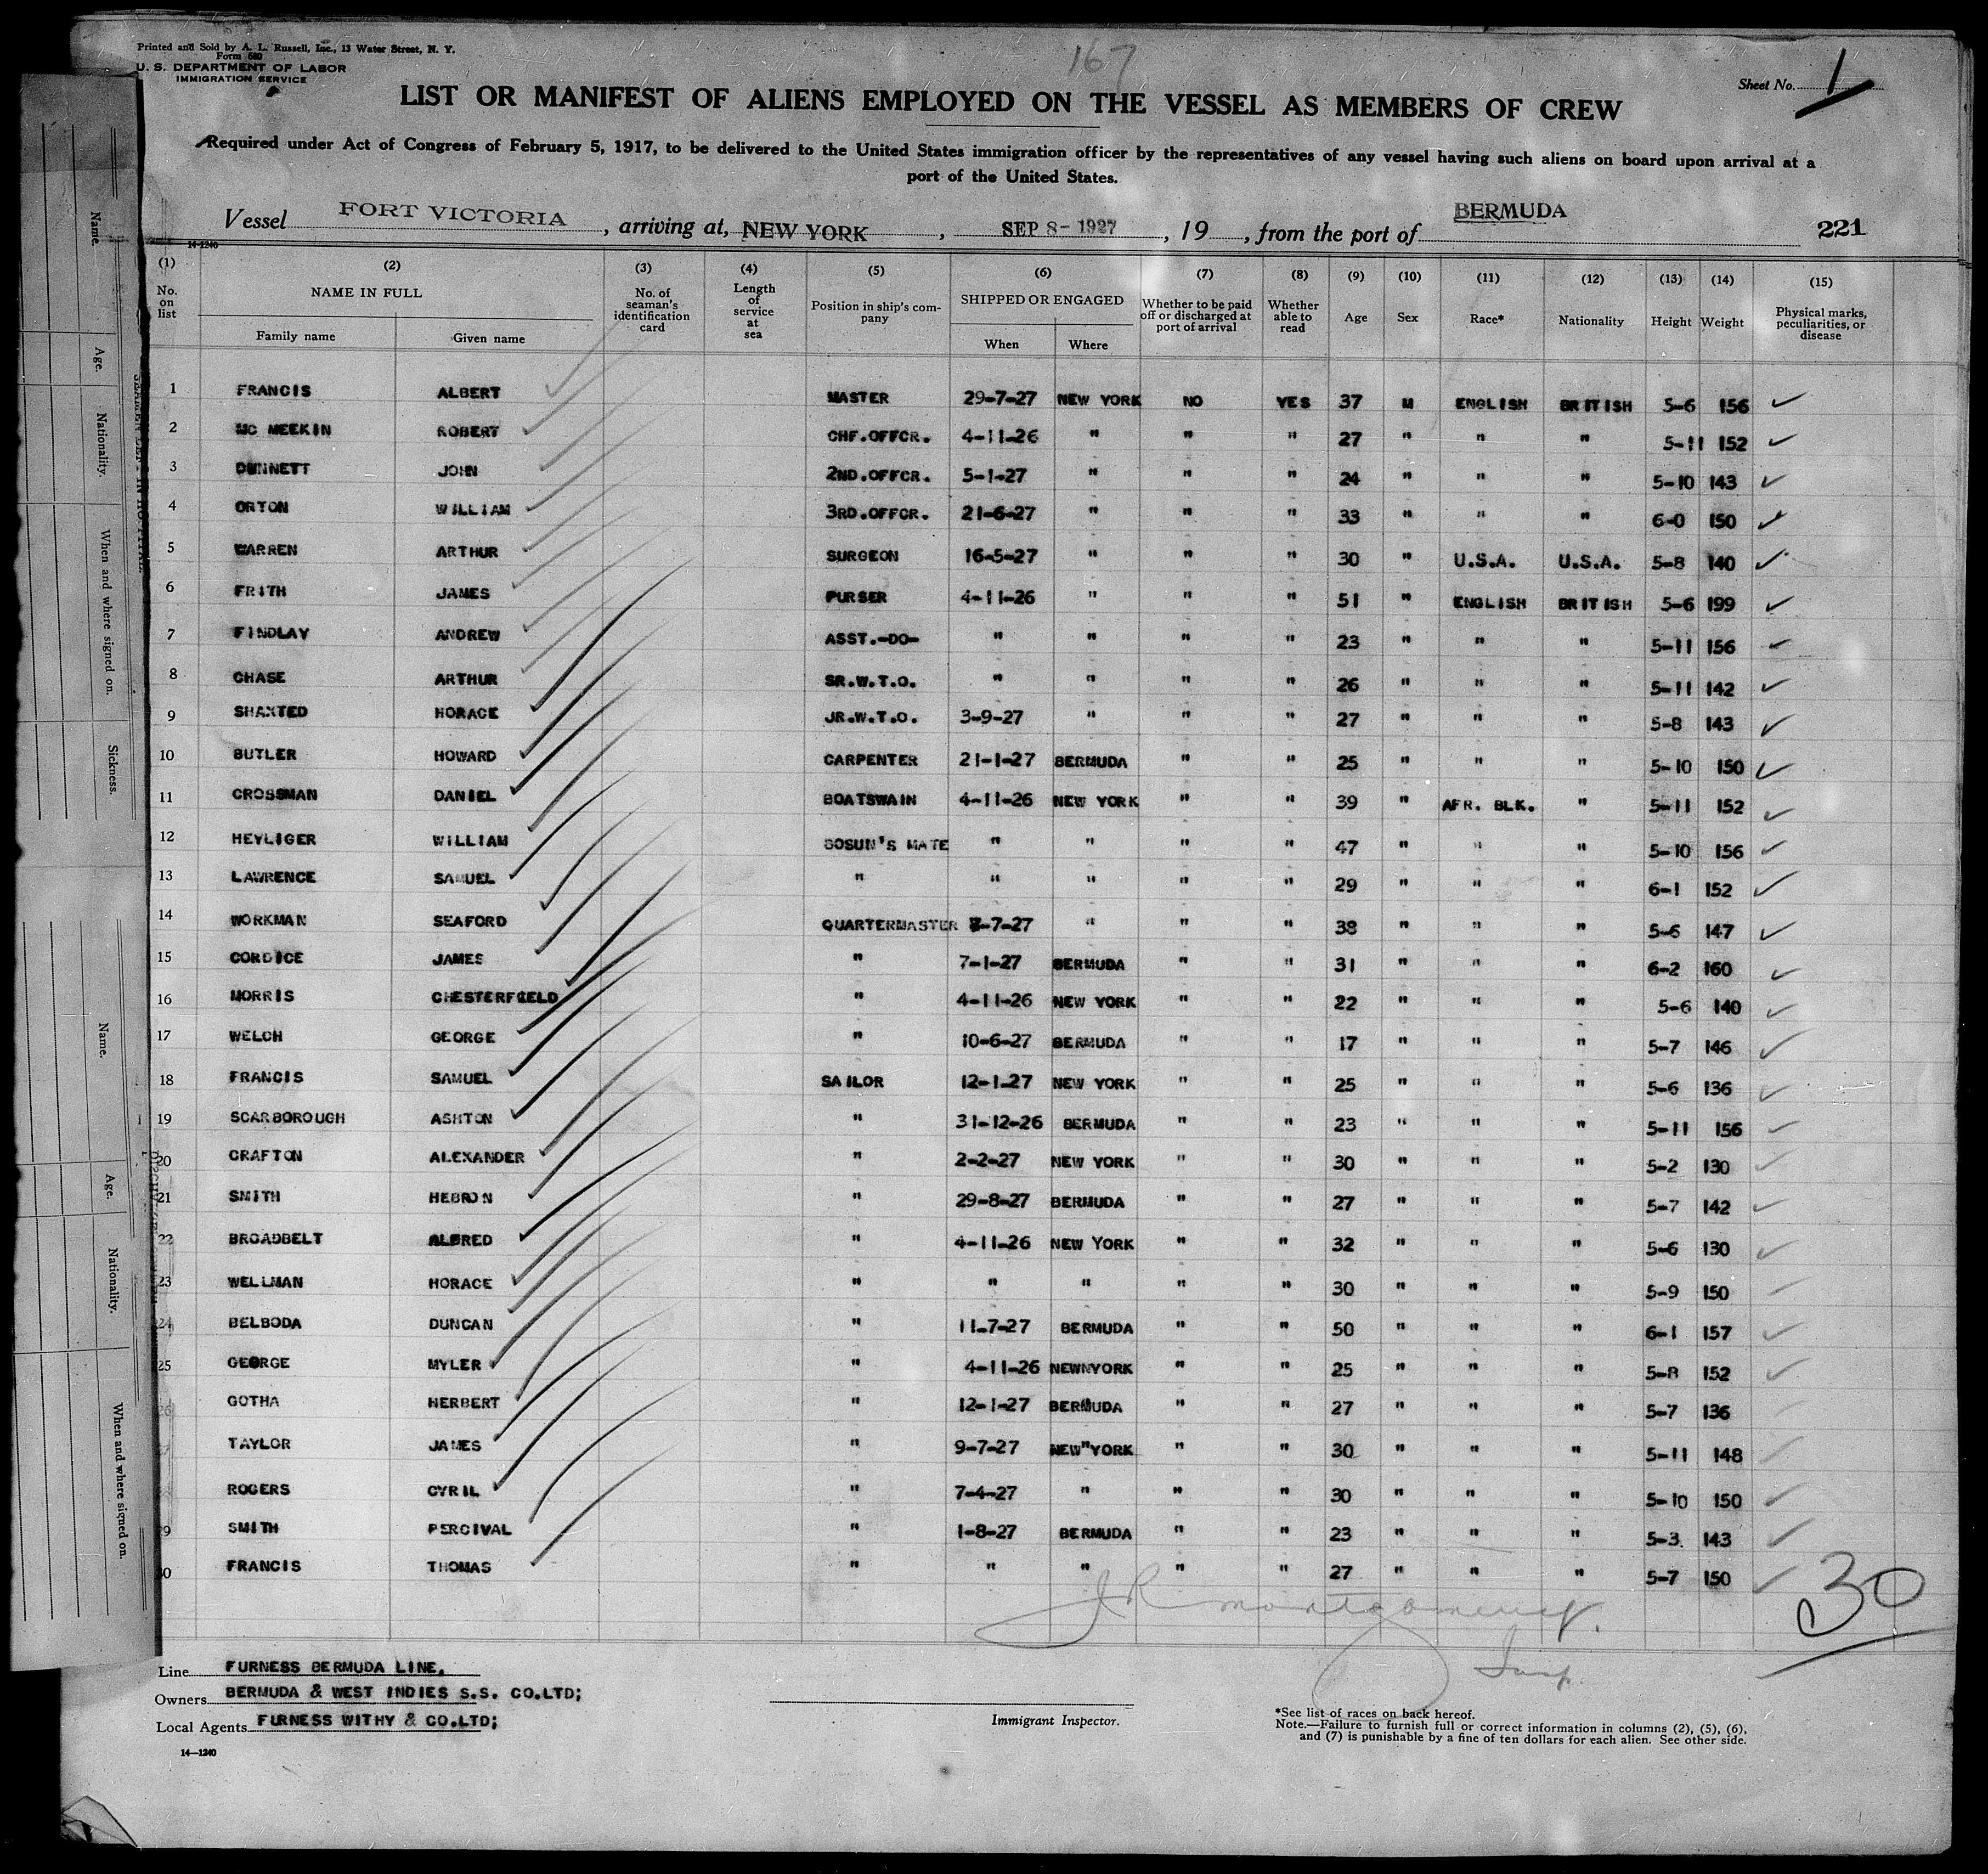 Printed and Sold by A. L. Russell, Inc., 13 Water Street, N. Y.
Form 680
U. S. DEPARTMENT OF LABOR
IMMIGRATION SERVICE
167
Sheet No. 1
LIST OR MANIFEST OF ALIENS EMPLOYED ON THE VESSEL AS MEMBERS OF CREW
Required under Act of Congress of February 5, 1917, to be delivered to the United States immigration officer by the representatives of any vessel having such aliens on board upon arrival at a
port of the United States.
Vessel FORT VICTORIA, arriving at, NEW YORK, SEP 8- 1927, 19, from the port of BERMUDA 221
14-1240
(1) (2) (3) (4) (5) (6) (7) (8) (9) (10) (11) (12) (13) (14) (15)
No. on list NAME IN FULL Family name Given name No. of seaman's identification card Length of service at sea Position in ship's company SHIPPED OR ENGAGED When Where Whether to be paid off or discharged at port of arrival Whether able to read Age Sex Race* Nationality Height Weight Physical marks, peculiarities, or disease
1 FRANCIS ALBERT MASTER 29-7-27 NEW YORK NO YES 37 M ENGLISH BRITISH 5-6 156
2 MC MEEKIN ROBERT CHF.OFFCR. 4-11-26 " " " 27 " " " 5-11 152
3 DUNNETT JOHN 2ND.OFFCR. 5-1-27 " " " 24 " " " 5-10 143
4 ORTON WILLIAM 3RD.OFFCR. 21-6-27 " " " 33 " " " 6-0 150
5 WARREN ARTHUR SURGEON 16-5-27 " " " 30 " U.S.A. U.S.A. 5-8 140
6 FRITH JAMES PURSER 4-11-26 " " " 51 " ENGLISH BRITISH 5-6 199
7 FINDLAY ANDREW ASST.-DO- " " " " 23 " " " 5-11 156
8 CHASE ARTHUR SR.W.T.O. " " " " 26 " " " 5-11 142
9 SHAXTED HORACE JR.W.T.O. 3-9-27 " " " 27 " " " 5-8 143
10 BUTLER HOWARD CARPENTER 21-1-27 BERMUDA " " 25 " " " 5-10 150
11 CROSSMAN DANIEL BOATSWAIN 4-11-26 NEW YORK " " 39 " AFR. BLK. " 5-11 152
12 HEYLIGER WILLIAM BOSUN'S MATE " " " " 47 " " " 5-10 156
13 LAWRENCE SAMUEL " " " " " 29 " " " 6-1 152
14 WORKMAN SEAFORD QUARTERMASTER 7-7-27 " " " 38 " " " 5-6 147
15 CORDICE JAMES " 7-1-27 BERMUDA " " 31 " " " 6-2 160
16 MORRIS CHESTERFIELD " 4-11-26 NEW YORK " " 22 " " " 5-6 140
17 WELCH GEORGE " 10-6-27 BERMUDA " " 17 " " " 5-7 146
18 FRANCIS SAMUEL SAILOR 12-1-27 NEW YORK " " 25 " " " 5-6 136
19 SCARBOROUGH ASHTON " 31-12-26 BERMUDA " " 23 " " " 5-11 156
20 CRAFTON ALEXANDER " 2-2-27 NEW YORK " " 30 " " " 5-2 130
21 SMITH HEBRON " 29-8-27 BERMUDA " " 27 " " " 5-7 142
22 BROADBELT ALFRED " 4-11-26 NEW YORK " " 32 " " " 5-6 130
23 WELLMAN HORACE " " " " " 30 " " " 5-9 150
24 BELBODA DUNCAN " 11-7-27 BERMUDA " " 50 " " " 6-1 157
25 GEORGE MYLER " 4-11-26 NEWNYORK " " 25 " " " 5-8 152
26 GOTHA HERBERT " 12-1-27 BERMUDA " " 27 " " " 5-7 136
27 TAYLOR JAMES " 9-7-27 NEW"YORK " " 30 " " " 5-11 148
ROGERS CYRIL " 7-4-27 " " " 30 " " " 5-10 150
29 SMITH PERCIVAL " 1-8-27 BERMUDA " " 23 " " " 5-3 143
30 FRANCIS THOMAS " " " " " 27 " " " 5-7 150
30
J R Montgomery.
Insp.
Line FURNESS BERMUDA LINE.
Owners BERMUDA & WEST INDIES S.S. CO.LTD;
Local Agents FURNESS WITHY & CO.LTD;
14—1240
Immigrant Inspector.
*See list of races on back hereof.
Note.—Failure to furnish full or correct information in columns (2), (5), (6),
and (7) is punishable by a fine of ten dollars for each alien. See other side.
Name.
Age.
Nationality.
When and where signed on.
Sickness.
Name.
Age.
Nationality.
When and where signed on.